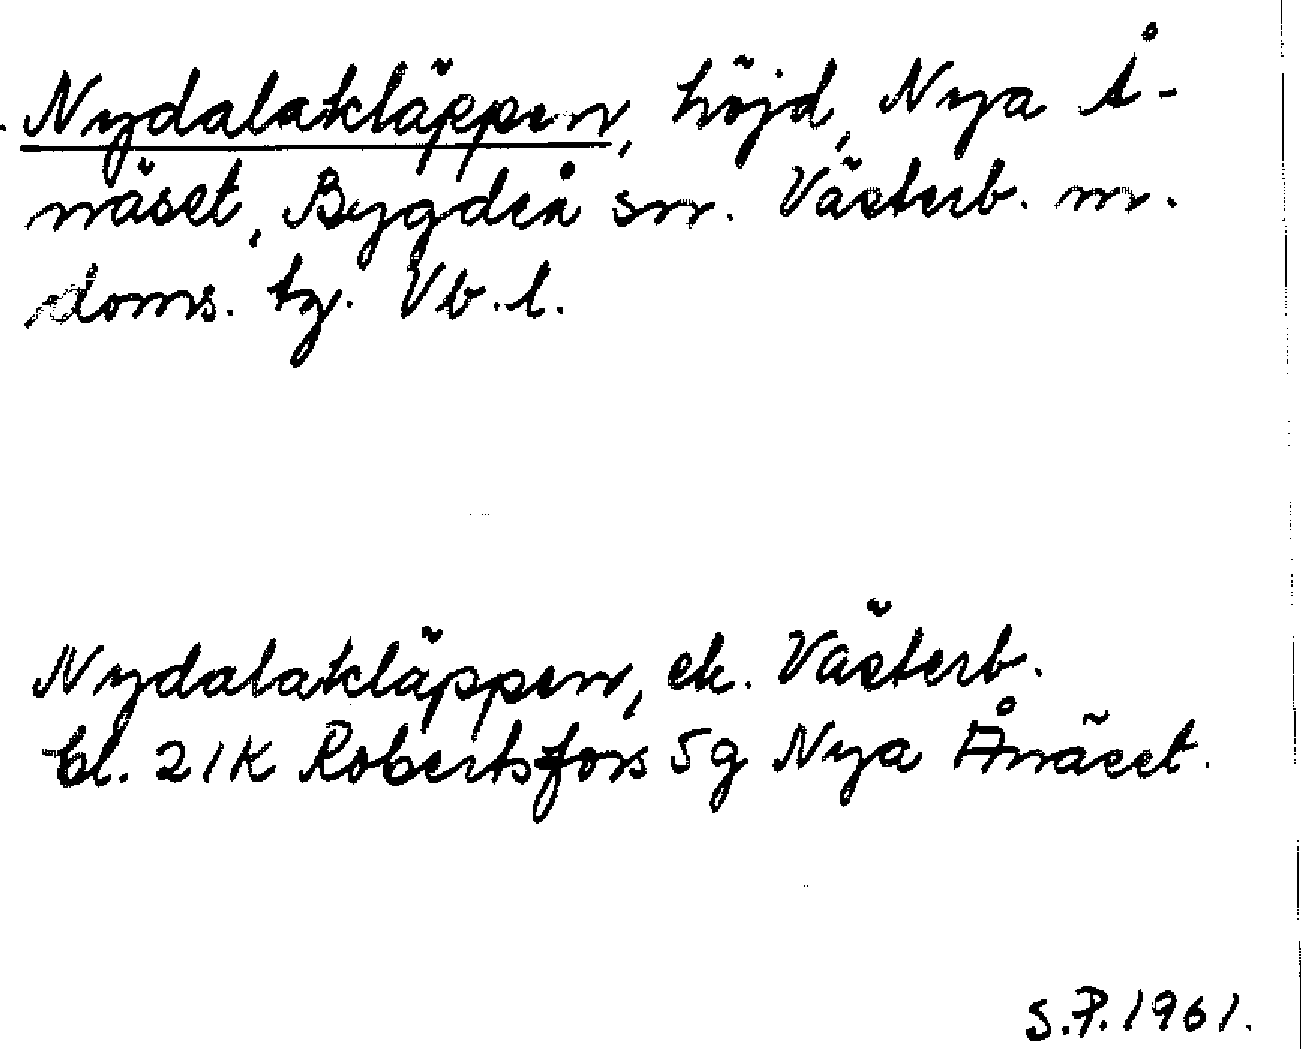 Nydalakläppen, höjd, Nya Å-
näset, Bygdeå sn. Västerb. n.
doms. tg. Vb.l.
Nydalakläppen, ek. Västerb.
bl. 21K Robertsfors 5g Nya Ånäset.
S.P.1961.